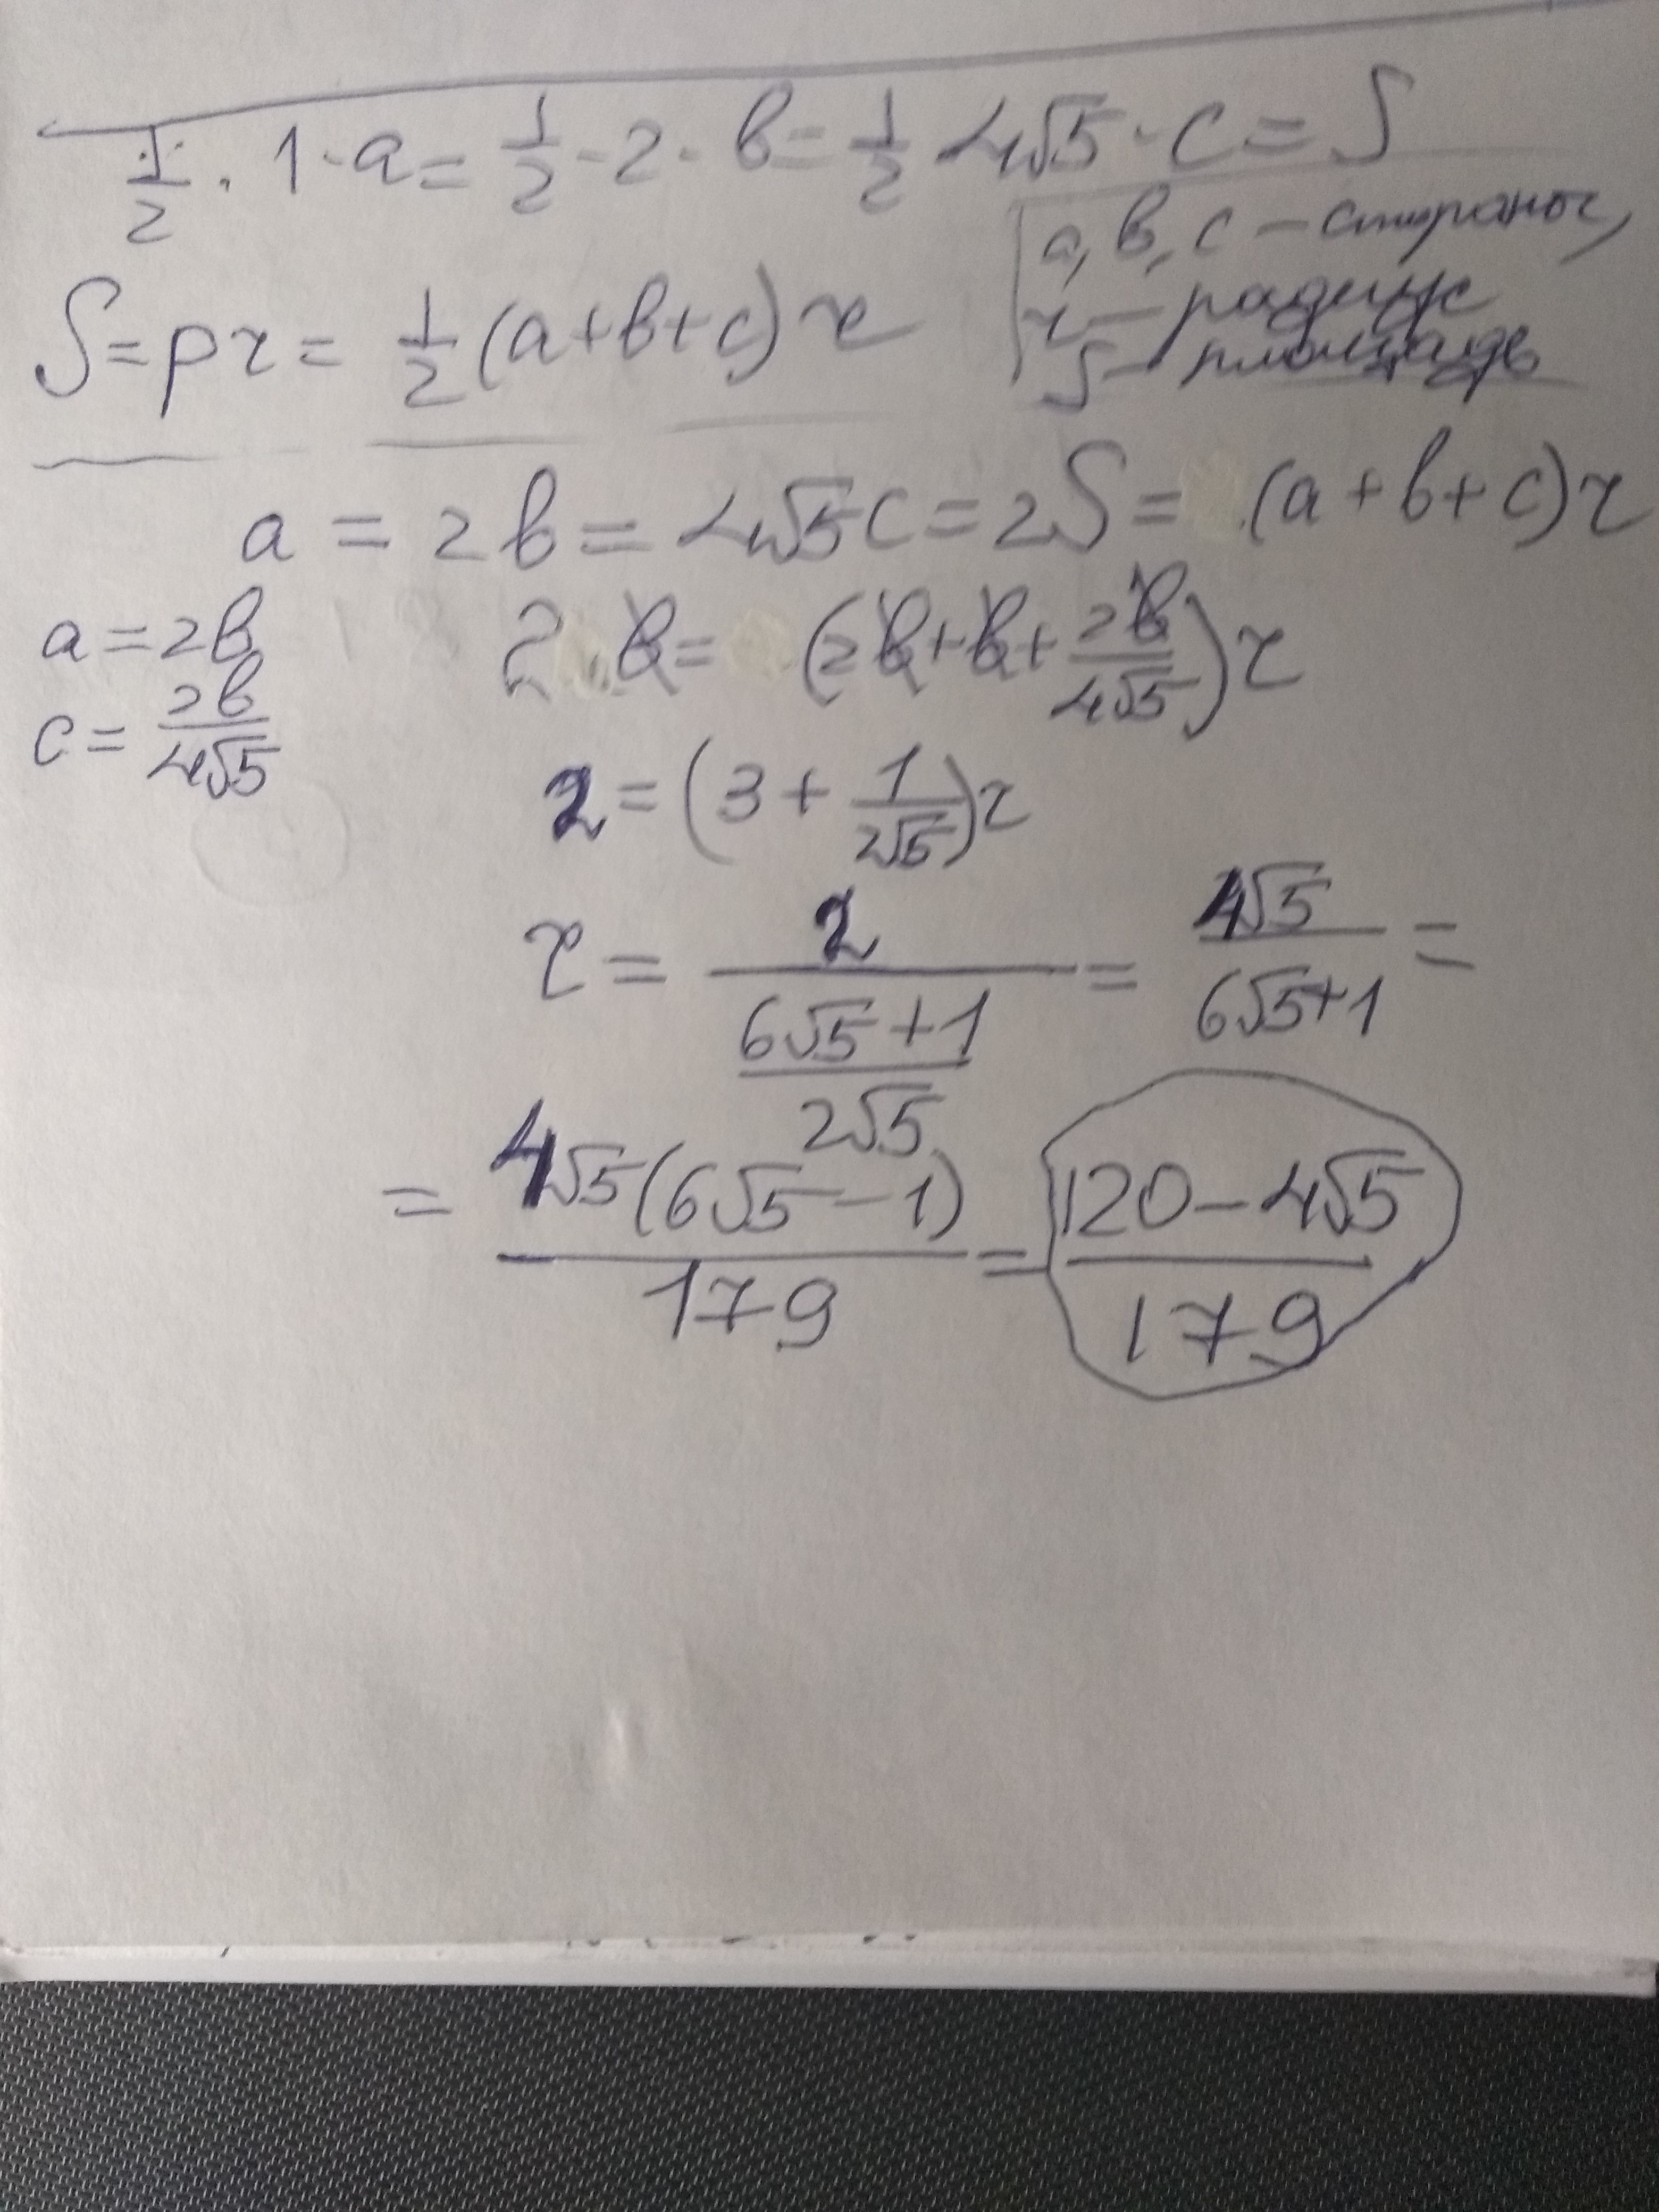 1/2 · 1 · a = 1/2 · 2 · в = 1/2 · 4√5 · c = S
a, в, c – стороны,
r – радиус
S – площадь
S = pr = 1/2 (a + в + c) r
a = 2в = 4√5c = 2S = (a + в + c) r
a = 2в
c = 2в/4√5
2в = (2в + в + 2в/4√5) r
2 = (3 + 1/2√5) r
r = 2/((6√5 + 1)/2√5) = 4√5/(6√5 + 1) =
= 4√5(6√5 – 1)/179 = (120 – 4√5)/179